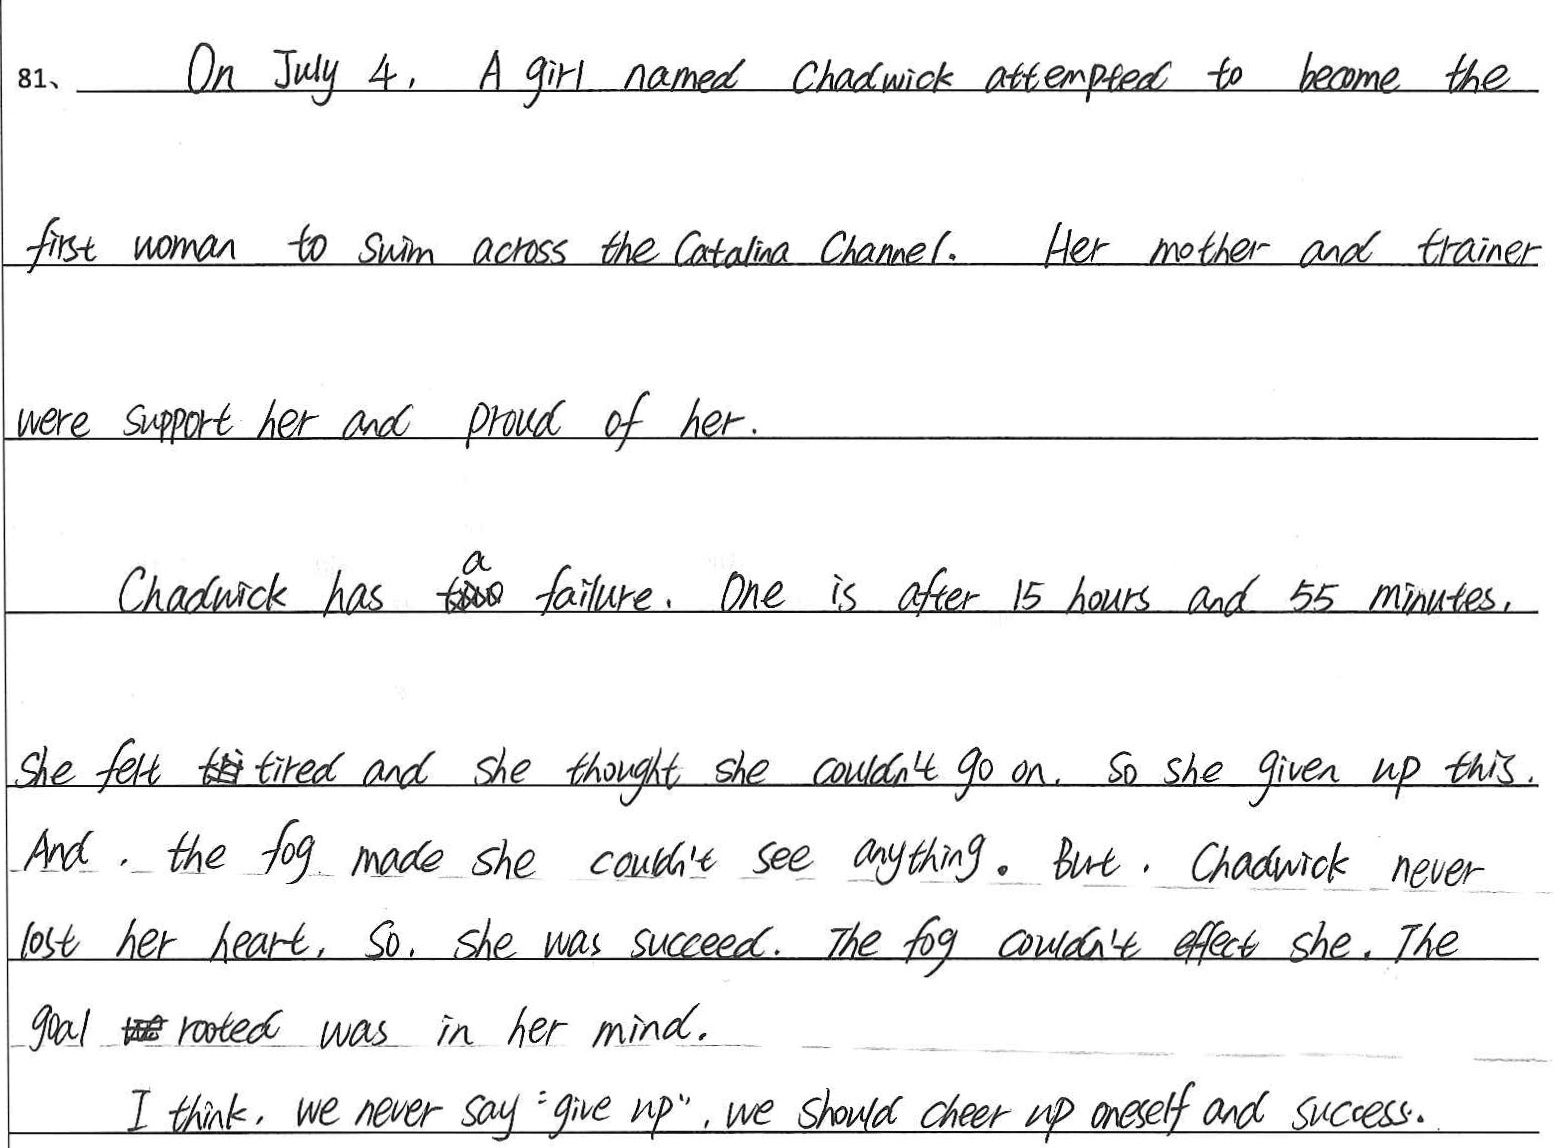 81、 On July 4, A girl named Chadwick attempted to become the
first woman to swim across the Catalina Channel. Her mother and trainer
were support her and proud of her.
a
Chadwick has failure. One is after 15 hours and 55 minutes,
she felt tired and she thought she couldn't go on. So she given up this.
And, the fog made she couldn't see anything. But, Chadwick never
lost her heart, So, she was succeed. The fog couldn't effect she. The
goal rooted was in her mind.
I think, we never say "give up", we should cheer up oneself and success.